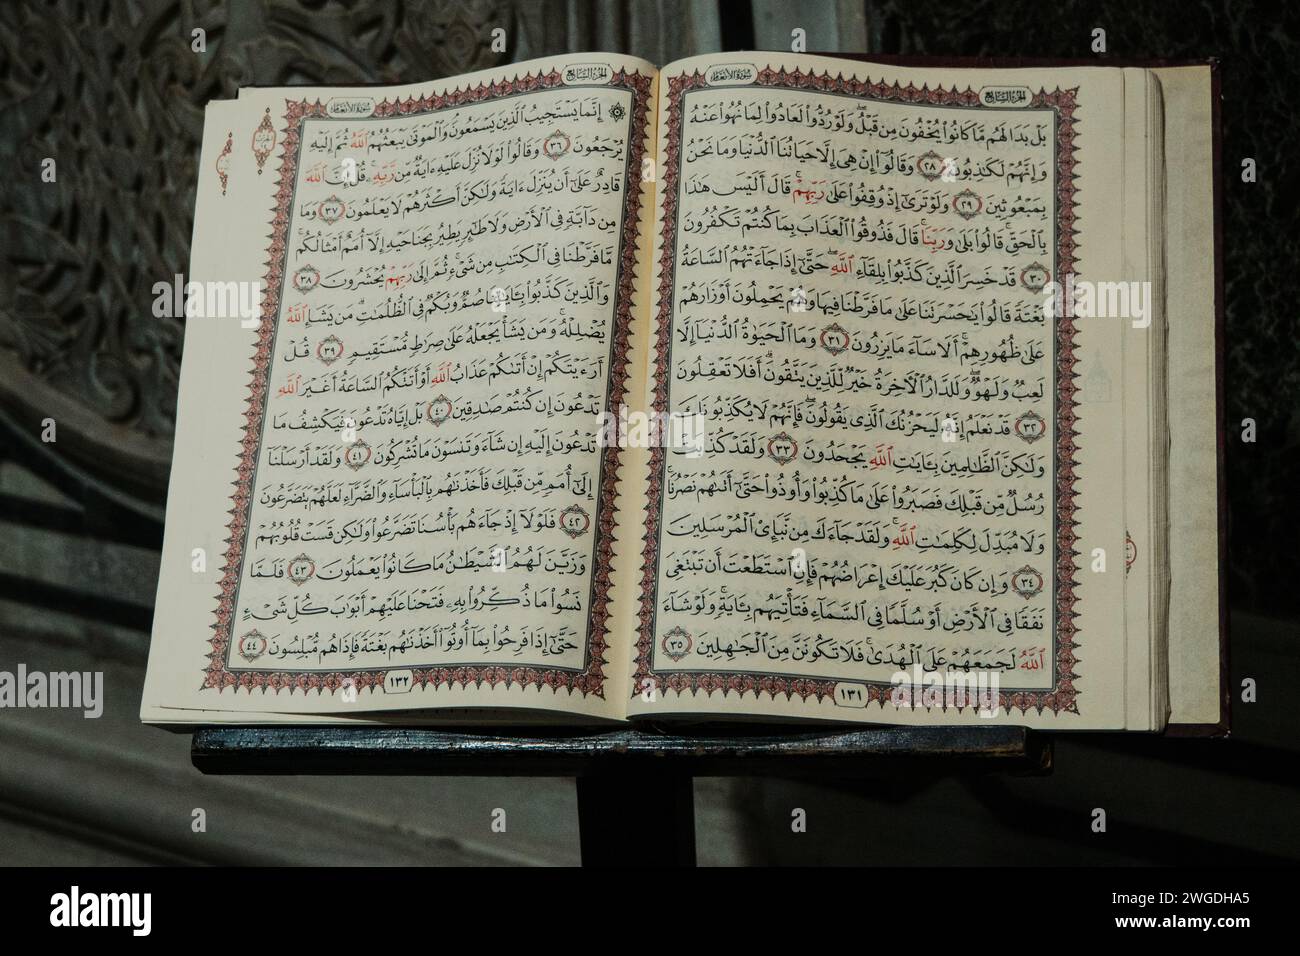 سورة الأنعام
الجزء السابع
بَلْ بَدَا لَهُم مَّا كَانُوا۟ يُخْفُونَ مِن قَبْلُ ۖ وَلَوْ رُدُّوا۟ لَعَادُوا۟ لِمَا نُهُوا۟ عَنْهُ
وَإِنَّهُمْ لَكَـٰذِبُونَ ٢٨ وَقَالُوٓا۟ إِنْ هِىَ إِلَّا حَيَاتُنَا ٱلدُّنْيَا وَمَا نَحْنُ
بِمَبْعُوثِينَ ٢٩ وَلَوْ تَرَىٰٓ إِذْ وُقِفُوا۟ عَلَىٰ رَبِّهِمْ ۚ قَالَ أَلَيْسَ هَـٰذَا
بِٱلْحَقِّ ۚ قَالُوا۟ بَلَىٰ وَرَبِّنَا ۚ قَالَ فَذُوقُوا۟ ٱلْعَذَابَ بِمَا كُنتُمْ تَكْفُرُونَ
٣٠ قَدْ خَسِرَ ٱلَّذِينَ كَذَّبُوا۟ بِلِقَآءِ ٱللَّهِ ۖ حَتَّىٰٓ إِذَا جَآءَتْهُمُ ٱلسَّاعَةُ
بَغْتَةً قَالُوا۟ يَـٰحَسْرَتَنَا عَلَىٰ مَا فَرَّطْنَا فِيهَا وَهُمْ يَحْمِلُونَ أَوْزَارَهُمْ
عَلَىٰ ظُهُورِهِمْ ۚ أَلَا سَآءَ مَا يَزِرُونَ ٣١ وَمَا ٱلْحَيَوٰةُ ٱلدُّنْيَآ إِلَّا
لَعِبٌ وَلَهْوٌ ۖ وَلَلدَّارُ ٱلْـَٔاخِرَةُ خَيْرٌ لِّلَّذِينَ يَتَّقُونَ ۗ أَفَلَا تَعْقِلُونَ
٣٢ قَدْ نَعْلَمُ إِنَّهُۥ لَيَحْزُنُكَ ٱلَّذِى يَقُولُونَ ۖ فَإِنَّهُمْ لَا يُكَذِّبُونَكَ
وَلَـٰكِنَّ ٱلظَّـٰلِمِينَ بِـَٔايَـٰتِ ٱللَّهِ يَجْحَدُونَ ٣٣ وَلَقَدْ كُذِّبَتْ
رُسُلٌ مِّن قَبْلِكَ فَصَبَرُوا۟ عَلَىٰ مَا كُذِّبُوا۟ وَأُوذُوا۟ حَتَّىٰٓ أَتَىٰهُمْ نَصْرُنَا ۚ
وَلَا مُبَدِّلَ لِكَلِمَـٰتِ ٱللَّهِ ۚ وَلَقَدْ جَآءَكَ مِن نَّبَإِى۟ ٱلْمُرْسَلِينَ
٣٤ وَإِن كَانَ كَبُرَ عَلَيْكَ إِعْرَاضُهُمْ فَإِنِ ٱسْتَطَعْتَ أَن تَبْتَغِىَ
نَفَقًا فِى ٱلْأَرْضِ أَوْ سُلَّمًا فِى ٱلسَّمَآءِ فَتَأْتِيَهُم بِـَٔايَةٍ ۚ وَلَوْ شَآءَ
ٱللَّهُ لَجَمَعَهُمْ عَلَى ٱلْهُدَىٰ ۚ فَلَا تَكُونَنَّ مِنَ ٱلْجَـٰهِلِينَ ٣٥
١٣١
الجزء السابع
سورة الأنعام
۞ إِنَّمَا يَسْتَجِيبُ ٱلَّذِينَ يَسْمَعُونَ ۘ وَٱلْمَوْتَىٰ يَبْعَثُهُمُ ٱللَّهُ ثُمَّ إِلَيْهِ
يُرْجَعُونَ ٣٦ وَقَالُوا۟ لَوْلَا نُزِّلَ عَلَيْهِ ءَايَةٌ مِّن رَّبِّهِۦ ۚ قُلْ إِنَّ ٱللَّهَ
قَادِرٌ عَلَىٰٓ أَن يُنَزِّلَ ءَايَةً وَلَـٰكِنَّ أَكْثَرَهُمْ لَا يَعْلَمُونَ ٣٧ وَمَا
مِن دَآبَّةٍ فِى ٱلْأَرْضِ وَلَا طَـٰٓئِرٍ يَطِيرُ بِجَنَاحَيْهِ إِلَّآ أُمَمٌ أَمْثَالُكُم ۚ
مَّا فَرَّطْنَا فِى ٱلْكِتَـٰبِ مِن شَىْءٍ ۚ ثُمَّ إِلَىٰ رَبِّهِمْ يُحْشَرُونَ ٣٨
وَٱلَّذِينَ كَذَّبُوا۟ بِـَٔايَـٰتِنَا صُمٌّ وَبُكْمٌ فِى ٱلظُّلُمَـٰتِ ۗ مَن يَشَإِ ٱللَّهُ
يُضْلِلْهُ وَمَن يَشَأْ يَجْعَلْهُ عَلَىٰ صِرَٰطٍ مُّسْتَقِيمٍ ٣٩ قُلْ
أَرَءَيْتَكُمْ إِنْ أَتَىٰكُمْ عَذَابُ ٱللَّهِ أَوْ أَتَتْكُمُ ٱلسَّاعَةُ أَغَيْرَ ٱللَّهِ
تَدْعُونَ إِن كُنتُمْ صَـٰدِقِينَ ٤٠ بَلْ إِيَّاهُ تَدْعُونَ فَيَكْشِفُ مَا
تَدْعُونَ إِلَيْهِ إِن شَآءَ وَتَنسَوْنَ مَا تُشْرِكُونَ ٤١ وَلَقَدْ أَرْسَلْنَآ
إِلَىٰٓ أُمَمٍ مِّن قَبْلِكَ فَأَخَذْنَـٰهُم بِٱلْبَأْسَآءِ وَٱلضَّرَّآءِ لَعَلَّهُمْ يَتَضَرَّعُونَ
٤٢ فَلَوْلَآ إِذْ جَآءَهُم بَأْسُنَا تَضَرَّعُوا۟ وَلَـٰكِن قَسَتْ قُلُوبُهُمْ
وَزَيَّنَ لَهُمُ ٱلشَّيْطَـٰنُ مَا كَانُوا۟ يَعْمَلُونَ ٤٣ فَلَمَّا
نَسُوا۟ مَا ذُكِّرُوا۟ بِهِۦ فَتَحْنَا عَلَيْهِمْ أَبْوَٰبَ كُلِّ شَىْءٍ
حَتَّىٰٓ إِذَا فَرِحُوا۟ بِمَآ أُوتُوٓا۟ أَخَذْنَـٰهُم بَغْتَةً فَإِذَا هُم مُّبْلِسُونَ ٤٤
١٣٢
alamy
Image ID: 2WGDHA5
www.alamy.com